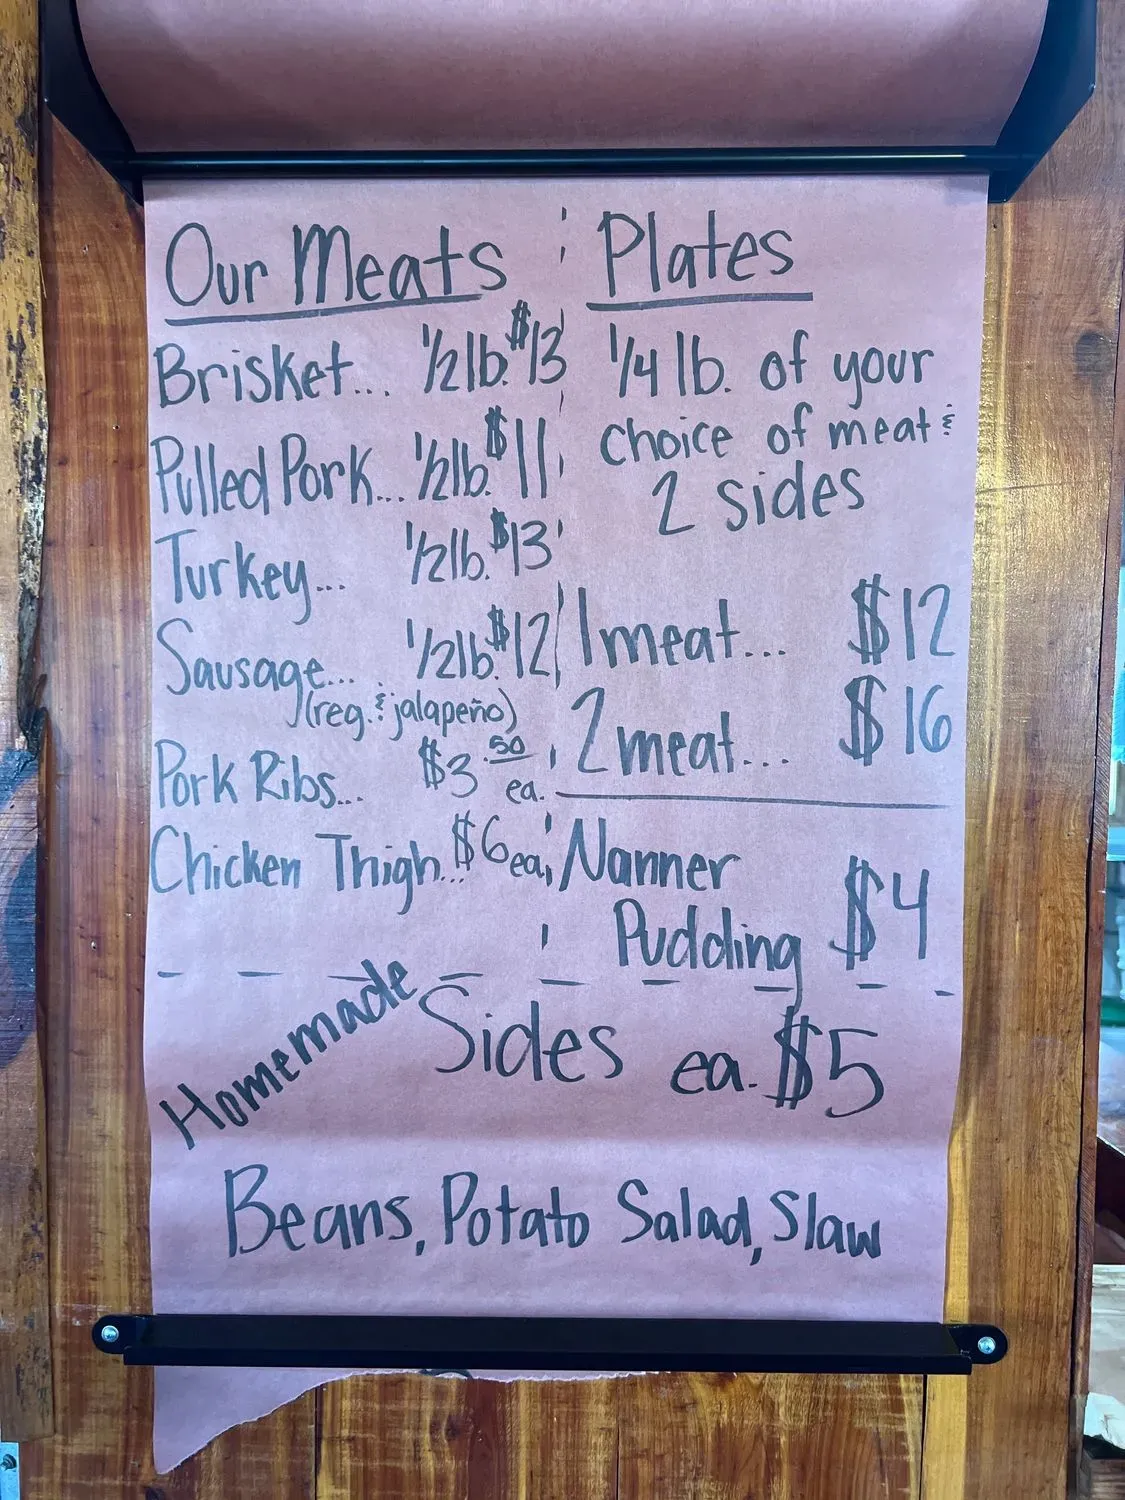 Our Meats
Brisket... 1/2 lb. $13
Pulled Pork... 1/2 lb. $11
Turkey... 1/2 lb. $13
Sausage... 1/2 lb. $12
(reg. & jalapeño)
Pork Ribs... $3.50 ea.
Chicken Thigh... $6 ea.
Plates
1/4 lb. of your
choice of meat &
2 sides
1 meat... $12
2 meat... $16
Nanner
Pudding $4
Homemade Sides ea. $5
Beans, Potato Salad, Slaw